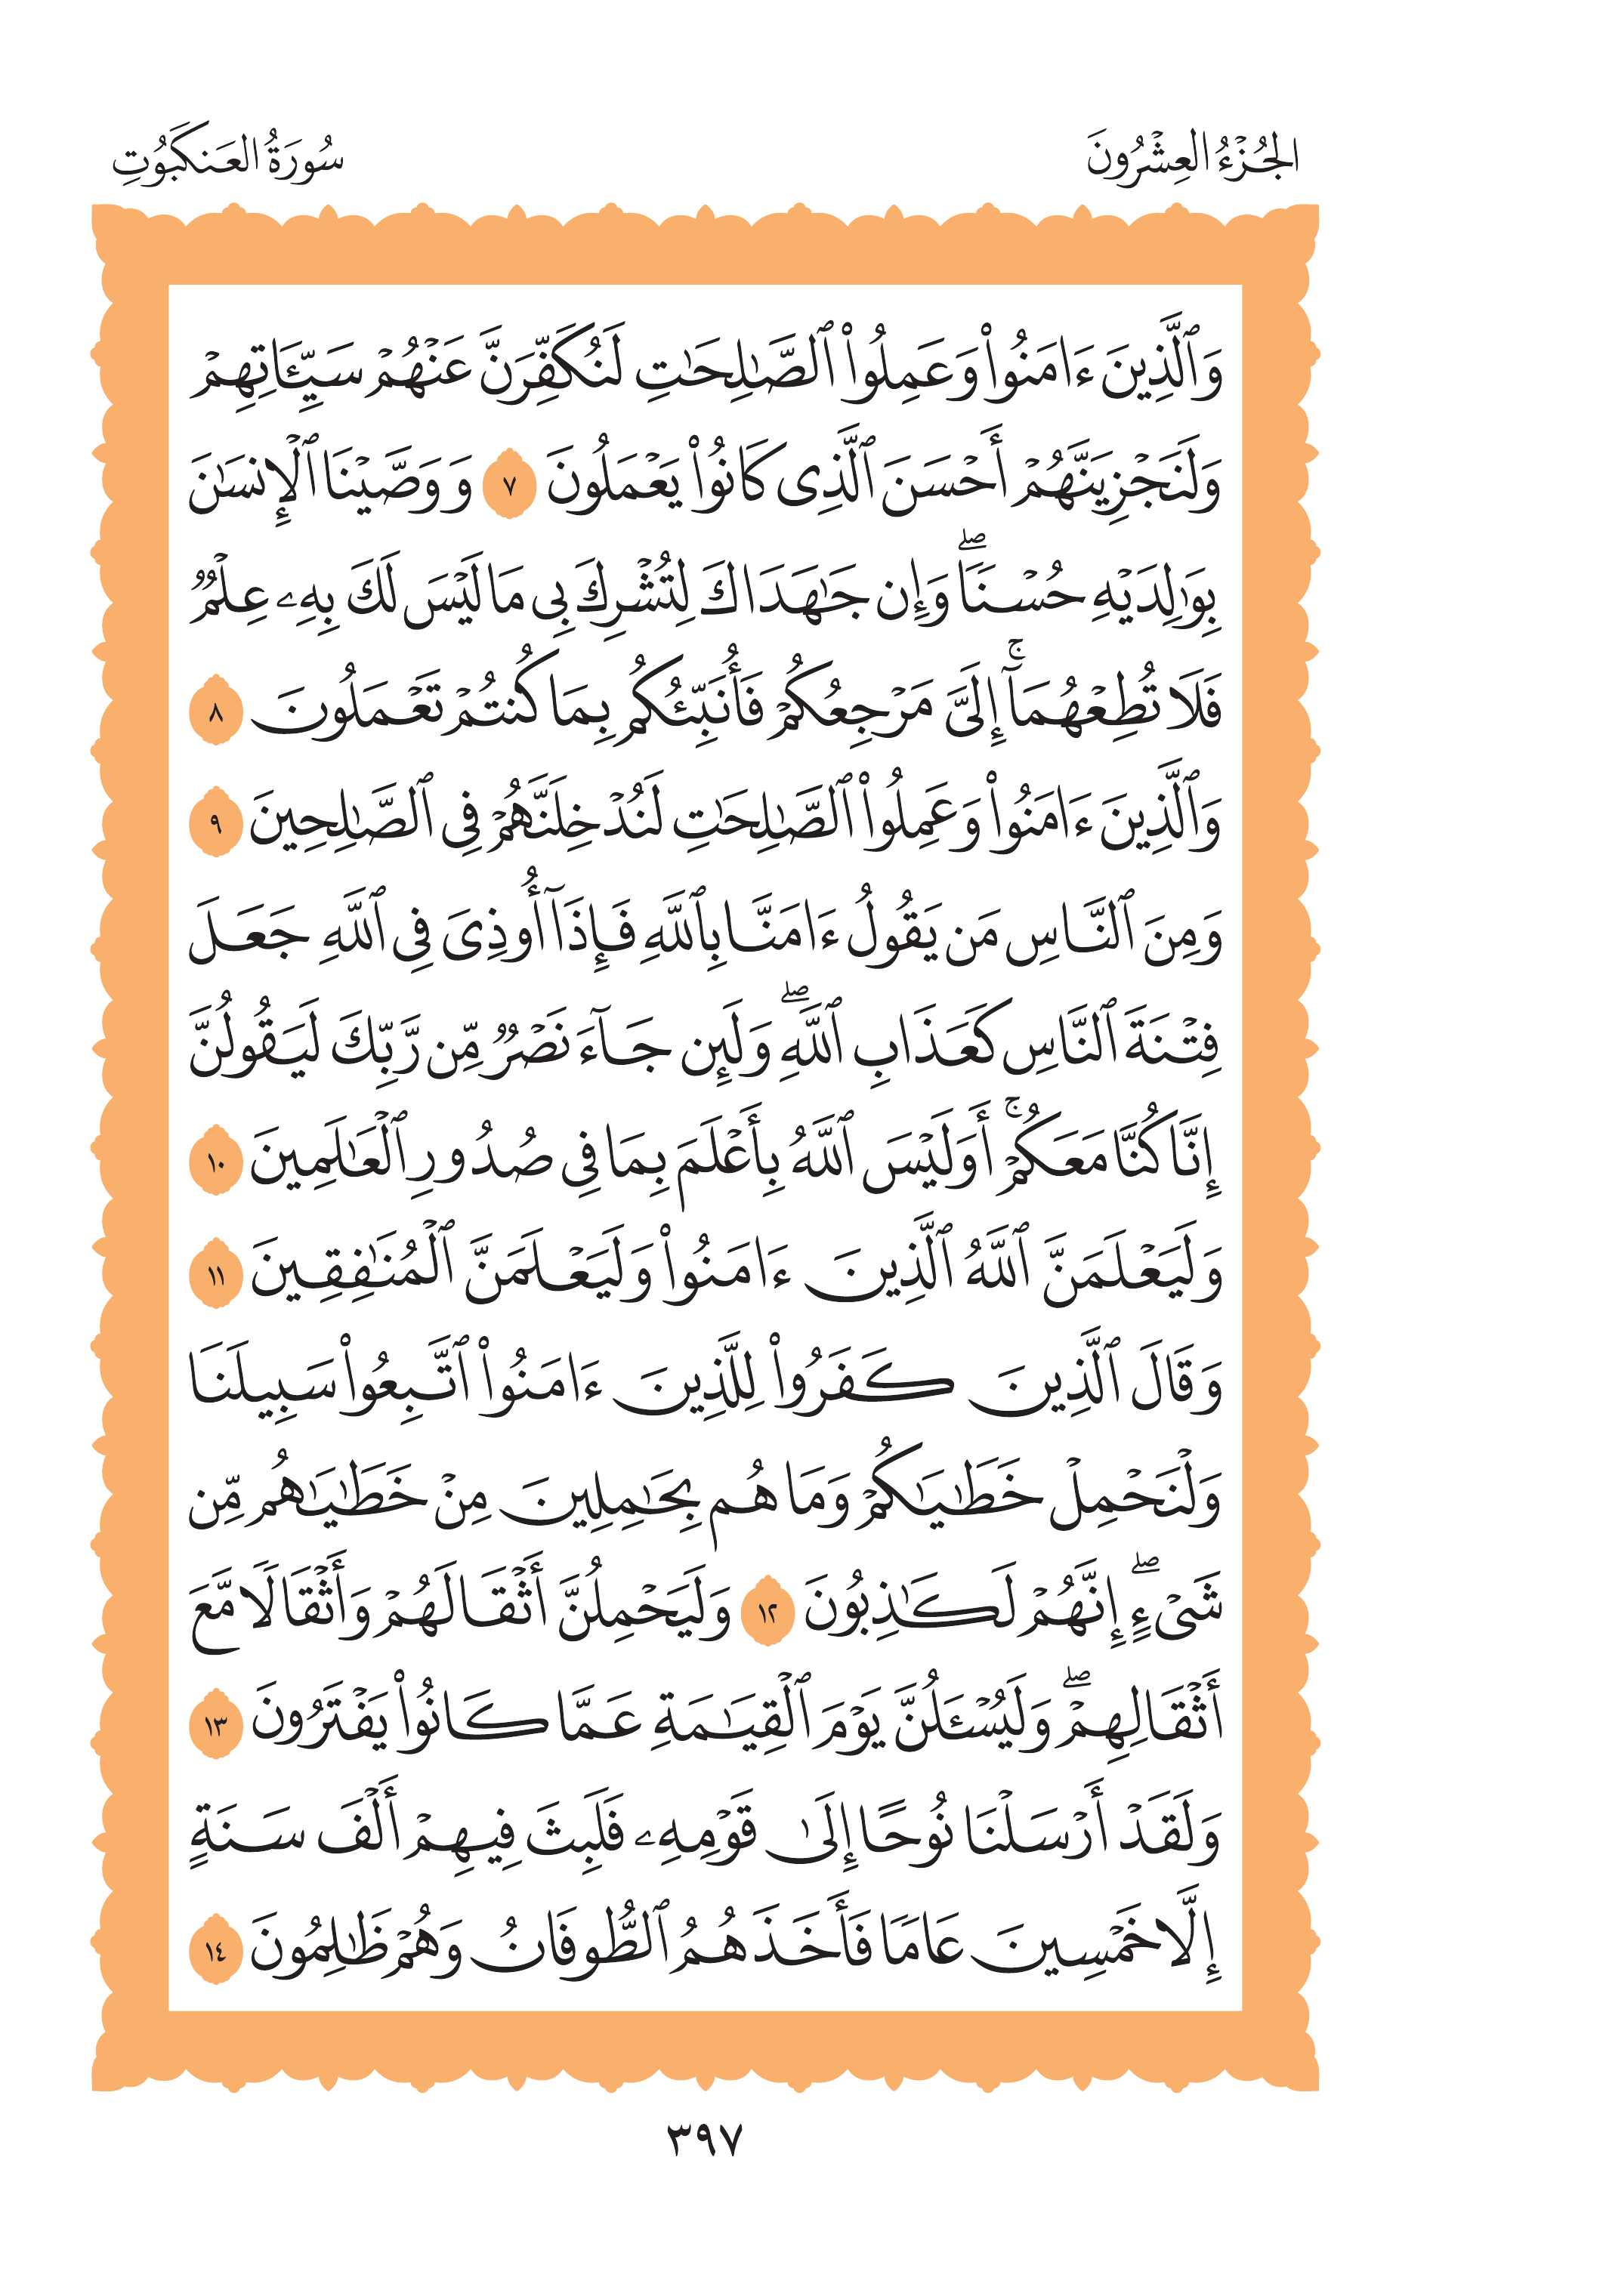 الجُزْءُ العِشْرُونَ
سُورَةُ العَنكَبُوتِ
وَٱلَّذِينَ ءَامَنُوا۟ وَعَمِلُوا۟ ٱلصَّـٰلِحَـٰتِ لَنُكَفِّرَنَّ عَنْهُمْ سَيِّـَٔاتِهِمْ
وَلَنَجْزِيَنَّهُمْ أَحْسَنَ ٱلَّذِى كَانُوا۟ يَعْمَلُونَ ٧ وَوَصَّيْنَا ٱلْإِنسَـٰنَ
بِوَٰلِدَيْهِ حُسْنًاۖ وَإِن جَـٰهَدَاكَ لِتُشْرِكَ بِى مَا لَيْسَ لَكَ بِهِۦ عِلْمٌ
فَلَا تُطِعْهُمَآۚ إِلَىَّ مَرْجِعُكُمْ فَأُنَبِّئُكُم بِمَا كُنتُمْ تَعْمَلُونَ ٨
وَٱلَّذِينَ ءَامَنُوا۟ وَعَمِلُوا۟ ٱلصَّـٰلِحَـٰتِ لَنُدْخِلَنَّهُمْ فِى ٱلصَّـٰلِحِينَ ٩
وَمِنَ ٱلنَّاسِ مَن يَقُولُ ءَامَنَّا بِٱللَّهِ فَإِذَآ أُوذِىَ فِى ٱللَّهِ جَعَلَ
فِتْنَةَ ٱلنَّاسِ كَعَذَابِ ٱللَّهِۖ وَلَئِن جَآءَ نَصْرٌ مِّن رَّبِّكَ لَيَقُولُنَّ
إِنَّا كُنَّا مَعَكُمْۚ أَوَلَيْسَ ٱللَّهُ بِأَعْلَمَ بِمَا فِى صُدُورِ ٱلْعَـٰلَمِينَ ١٠
وَلَيَعْلَمَنَّ ٱللَّهُ ٱلَّذِينَ ءَامَنُوا۟ وَلَيَعْلَمَنَّ ٱلْمُنَـٰفِقِينَ ١١
وَقَالَ ٱلَّذِينَ كَفَرُوا۟ لِلَّذِينَ ءَامَنُوا۟ ٱتَّبِعُوا۟ سَبِيلَنَا
وَلْنَحْمِلْ خَطَـٰيَـٰكُمْ وَمَا هُم بِحَـٰمِلِينَ مِنْ خَطَـٰيَـٰهُم مِّن
شَىْءٍۖ إِنَّهُمْ لَكَـٰذِبُونَ ١٢ وَلَيَحْمِلُنَّ أَثْقَالَهُمْ وَأَثْقَالًا مَّعَ
أَثْقَالِهِمْۖ وَلَيُسْـَٔلُنَّ يَوْمَ ٱلْقِيَـٰمَةِ عَمَّا كَانُوا۟ يَفْتَرُونَ ١٣
وَلَقَدْ أَرْسَلْنَا نُوحًا إِلَىٰ قَوْمِهِۦ فَلَبِثَ فِيهِمْ أَلْفَ سَنَةٍ
إِلَّا خَمْسِينَ عَامًا فَأَخَذَهُمُ ٱلطُّوفَانُ وَهُمْ ظَـٰلِمُونَ ١٤
٣٩٧